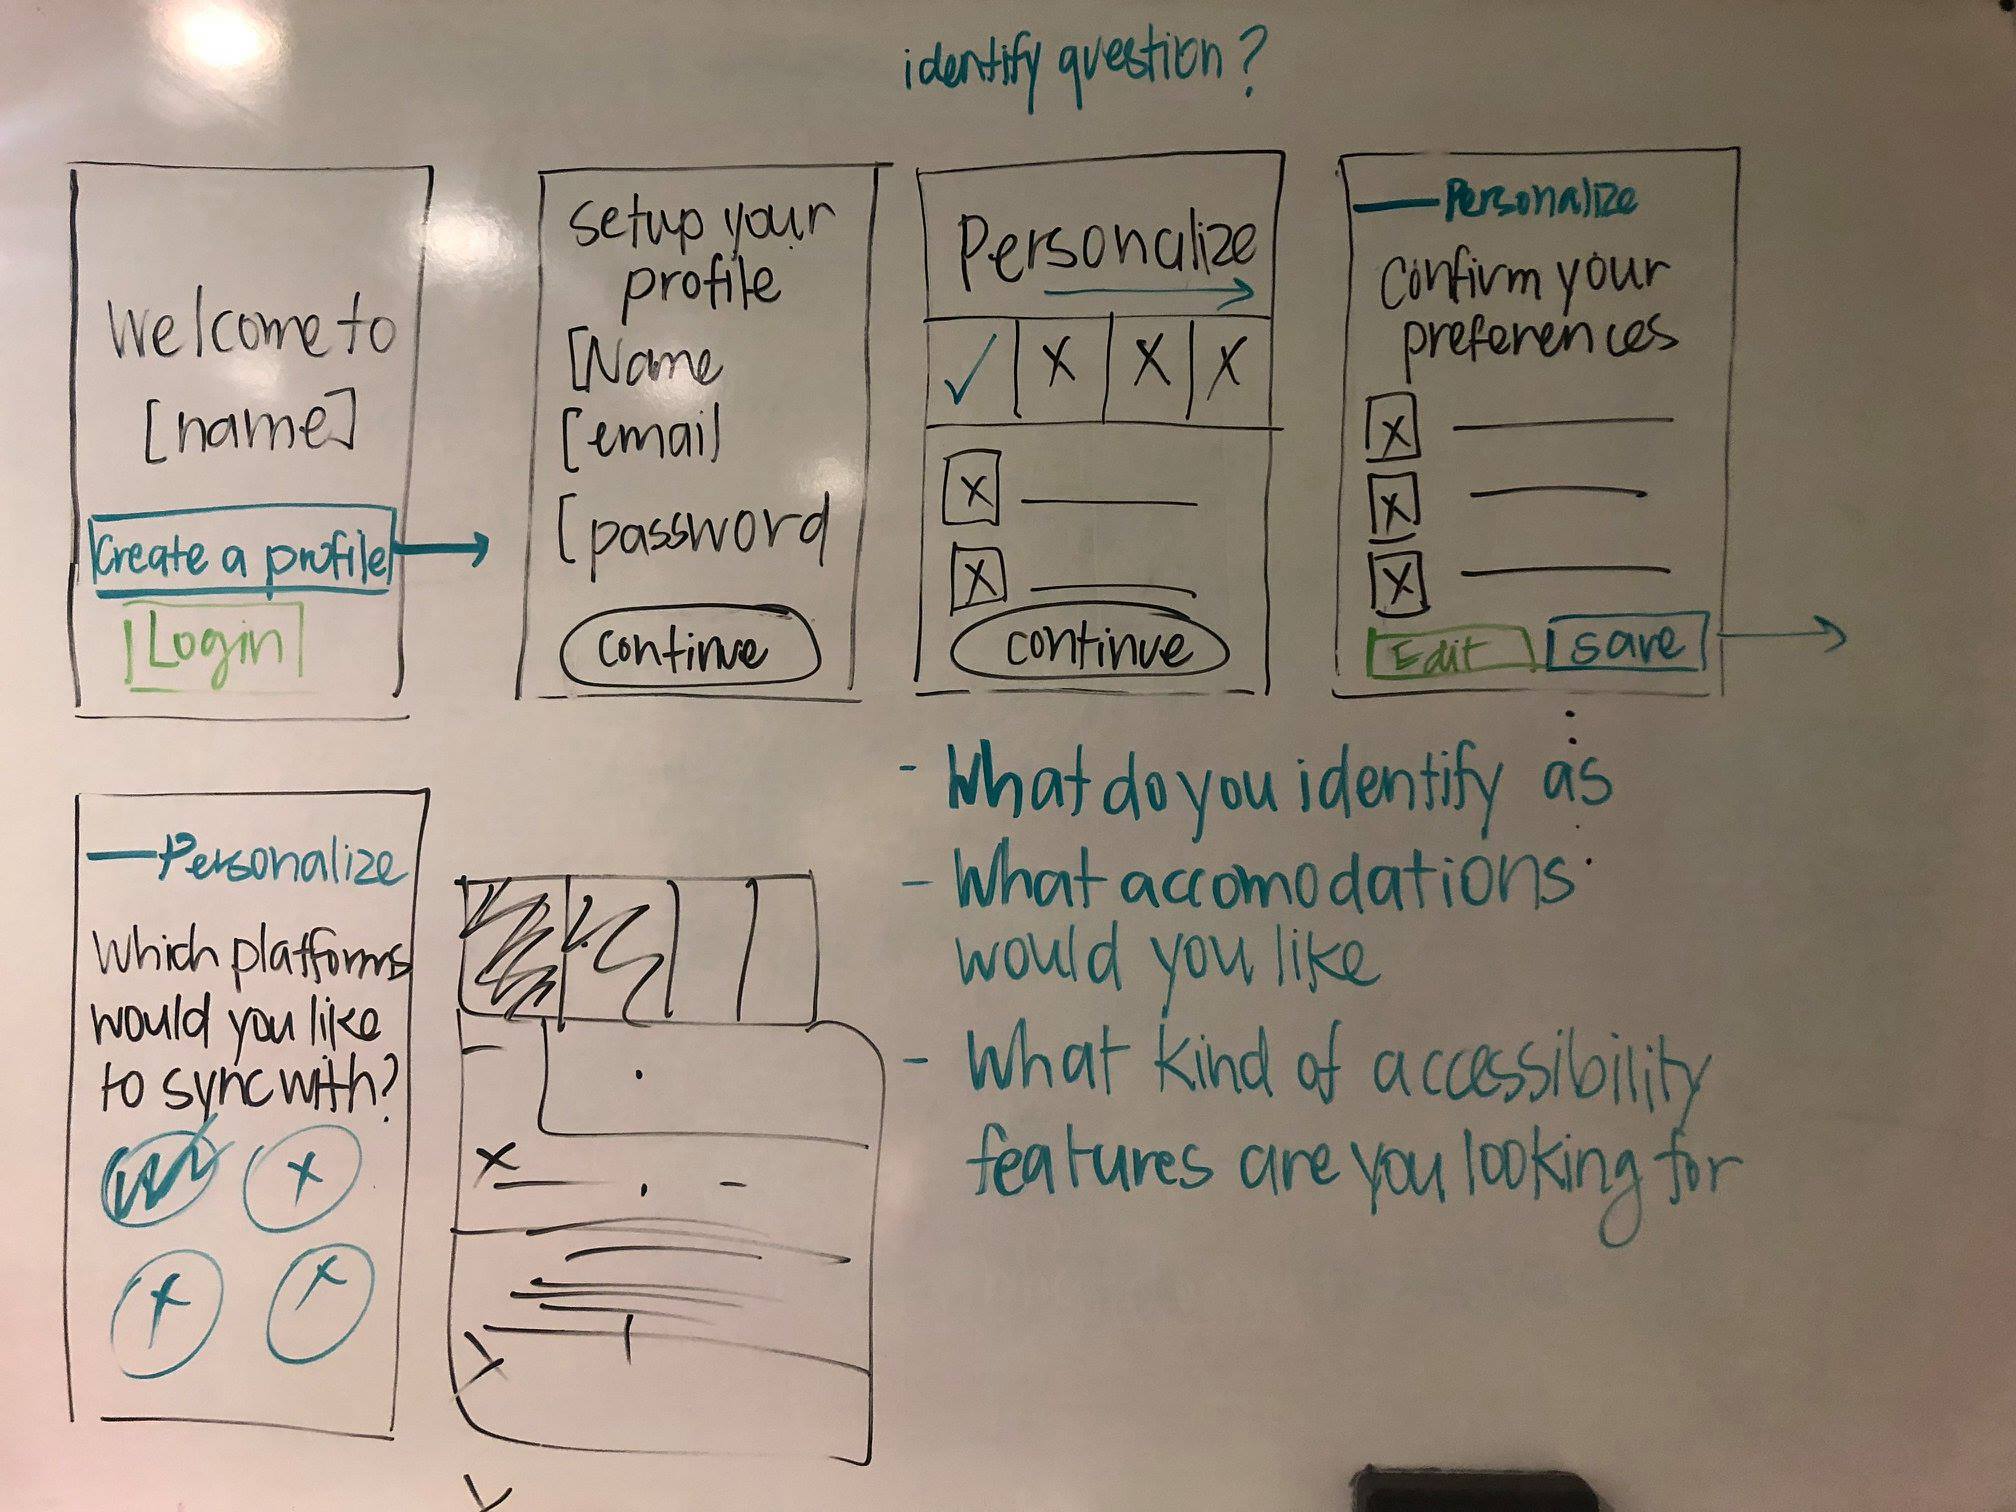 identify question?
Welcome to
[name]
Create a profile
Login
setup your
profile
[Name
[email]
[password
continue
Personalize
✓ X X X
X
X
continue
Personalize
Confirm your
preferences
X
X
X
Edit save
Personalize
Which platforms
would you like
to sync with?
X
X X
- What do you identify as
- What accomodations
would you like
- What kind of accessibility
features are you looking for